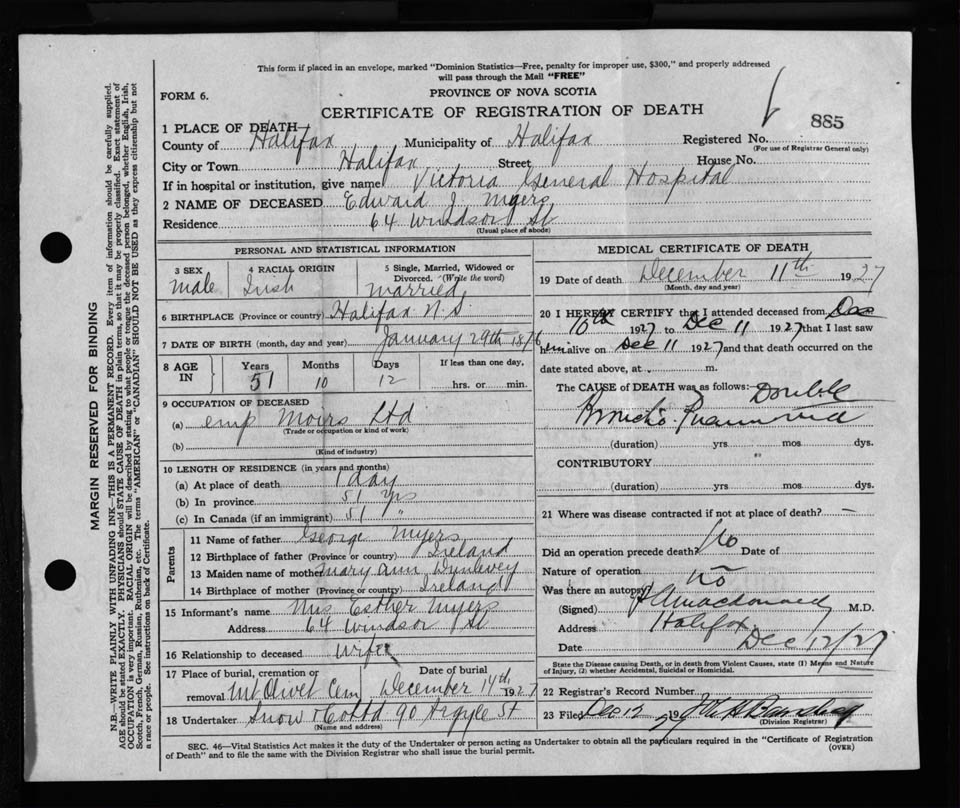 This form if placed in an envelope, marked "Dominion Statistics—Free, penalty for improper use, $300," and properly addressed
will pass through the Mail "FREE"
FORM 6.
PROVINCE OF NOVA SCOTIA
CERTIFICATE OF REGISTRATION OF DEATH
885
1 PLACE OF DEATH—
County of Halifax Municipality of Halifax Registered No.
(For use of Registrar General only)
City or Town Halifax Street House No.
If in hospital or institution, give name Victoria General Hospital
2 NAME OF DECEASED Edward J. Myers
Residence 64 Windsor St
(Usual place of abode)
PERSONAL AND STATISTICAL INFORMATION
3 SEX 4 RACIAL ORIGIN 5 Single, Married, Widowed or
Divorced. (Write the word)
Male Irish Married
6 BIRTHPLACE (Province or country) Halifax N.S.
7 DATE OF BIRTH (month, day and year) January 29th 1876
8 AGE IN Years Months Days If less than one day,
51 10 12 hrs. or min.
9 OCCUPATION OF DECEASED
(a) emp Moirs Ltd
(Trade or occupation or kind of work)
(b)
(Kind of industry)
10 LENGTH OF RESIDENCE (in years and months)
(a) At place of death 1 day
(b) In province 51 yrs
(c) In Canada (if an immigrant) 51 "
Parents
11 Name of father George Myers
12 Birthplace of father (Province or country) Ireland
13 Maiden name of mother Mary Ann
14 Birthplace of mother (Province or country) Ireland
15 Informant's name Mrs Esther Myers
Address 64 Windsor St
16 Relationship to deceased wife
17 Place of burial, cremation or removal Mt Olivet Cem Date of burial December 14th 1927
18 Undertaker Snow & Co Ltd 90 Argyle St
(Name and address)
MEDICAL CERTIFICATE OF DEATH
19 Date of death December 11th 1927
(Month, day and year)
20 I HEREBY CERTIFY that I attended deceased from Dec
10th 1927 to Dec 11 1927 that I last saw
him alive on Dec 11 1927 and that death occurred on the
date stated above, at m.
The CAUSE of DEATH was as follows: Double
Broncho. Pneumonia
(duration) yrs mos dys.
CONTRIBUTORY
(duration) yrs mos dys.
21 Where was disease contracted if not at place of death? —
Did an operation precede death? No Date of
Nature of operation
Was there an autopsy? no
(Signed) Macdonald M.D.
Address Halifax
Date Dec 12/27
State the Disease causing Death, or in death from Violent Causes, state (1) Means and Nature
of Injury, (2) whether Accidental, Suicidal or Homicidal.
22 Registrar's Record Number
23 Filed Dec 12 1927
(Division Registrar)
SEC. 46—Vital Statistics Act makes it the duty of the Undertaker or person acting as Undertaker to obtain all the particulars required in the "Certificate of Registration
of Death" and to file the same with the Division Registrar who shall issue the burial permit.
(OVER)
MARGIN RESERVED FOR BINDING
N.B.—WRITE PLAINLY WITH UNFADING INK—THIS IS A PERMANENT RECORD. Every item of information should be carefully supplied.
AGE should be stated EXACTLY. PHYSICIANS should STATE CAUSE OF DEATH in plain terms, so that it may be properly classified. Exact statement of
OCCUPATION is very important. RACIAL ORIGIN will be described by stating to what people or tongue the deceased person belonged, whether English, Irish,
Scotch, French, German, Russian, Ruthenian, etc. The terms "AMERICAN" or "CANADIAN" SHOULD NOT BE USED as they express citizenship but not
a race or people. See instructions on back of Certificate.